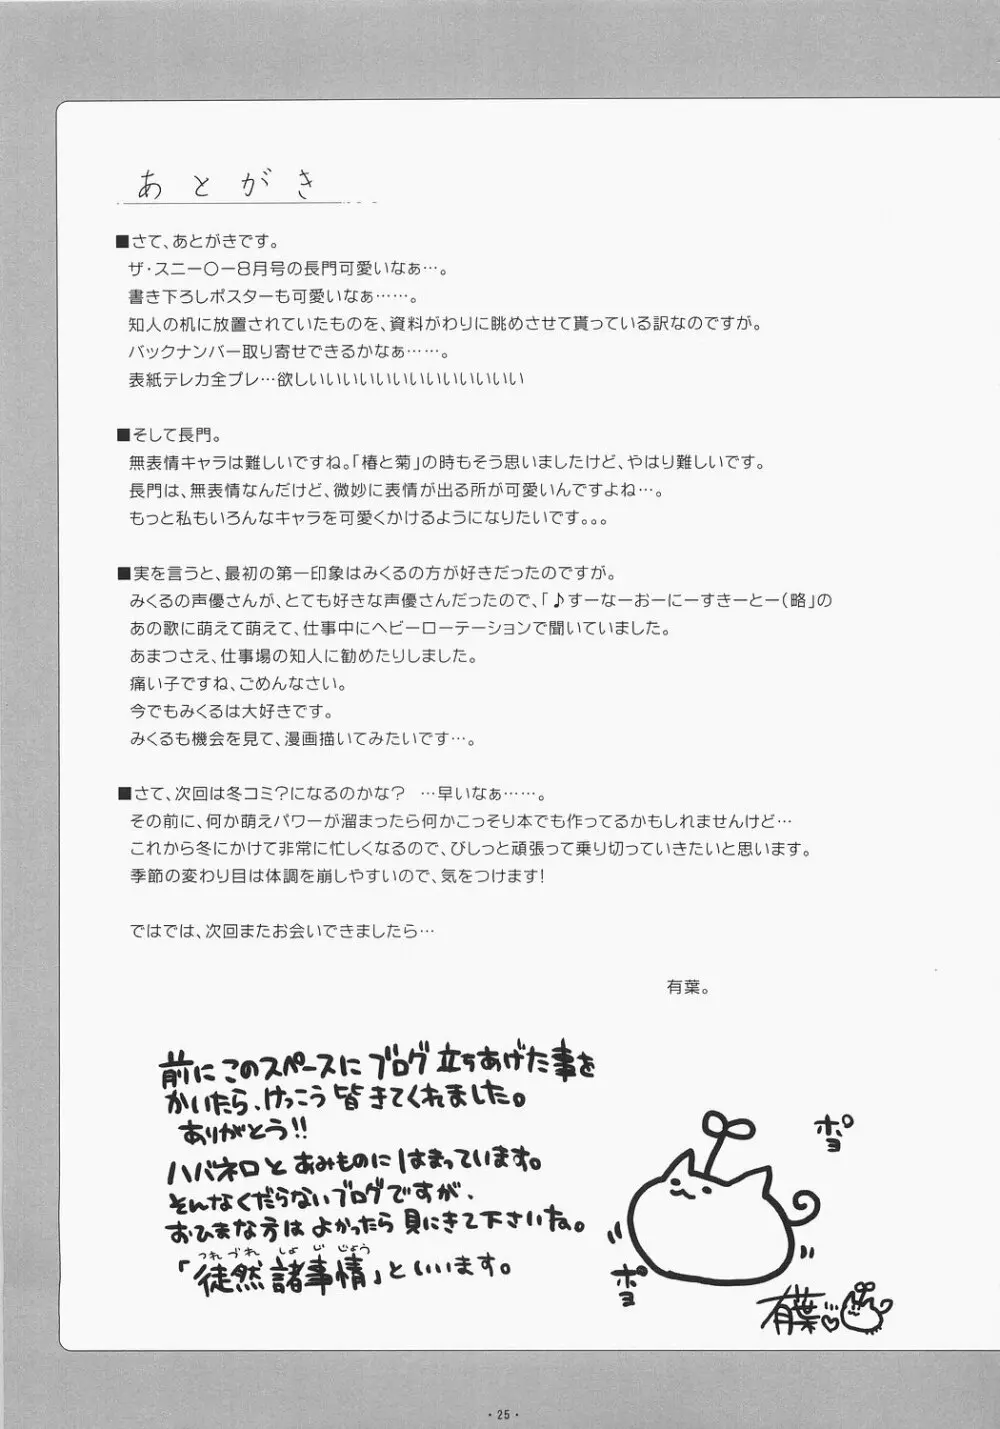 あとがき
■さて、あとがきです。
ザ・スニー〇ー8月号の長門可愛いなぁ…。
書き下ろしポスターも可愛いなぁ……。
知人の机に放置されていたものを、資料がわりに眺めさせて貰っている訳なのですが。
バックナンバー取り寄せできるかなぁ……。
表紙テレカ全プレ…欲しいいいいいいいいいいいいい
■そして長門。
無表情キャラは難しいですね。「椿と菊」の時もそう思いましたけど、やはり難しいです。
長門は、無表情なんだけど、微妙に表情が出る所が可愛いんですよね…。
もっと私もいろんなキャラを可愛くかけるようになりたいです。。。
■実を言うと、最初の第一印象はみくるの方が好きだったのですが。
みくるの声優さんが、とても好きな声優さんだったので、「♪すーなーおーにーすきーとー(略」の
あの歌に萌えて萌えて、仕事中にヘビーローテーションで聞いていました。
あまつさえ、仕事場の知人に勧めたりしました。
痛い子ですね、ごめんなさい。
今でもみくるは大好きです。
みくるも機会を見て、漫画描いてみたいです…。
■さて、次回は冬コミ?になるのかな? …早いなぁ……。
その前に、何か萌えパワーが溜まったら何かこっそり本でも作ってるかもしれませんけど…
これから冬にかけて非常に忙しくなるので、びしっと頑張って乗り切っていきたいと思います。
季節の変わり目は体調を崩しやすいので、気をつけます!
ではでは、次回またお会いできましたら…
有葉。
前にこのスペースにブログ立ちあげた事を
かいたら、けっこう皆きてくれました。
ありがとう!!
ハバネロとあみものにはまっています。
そんなくだらないブログですが、
おひまな方はよかったら見にきて下さいね。
つれづれ しょじじょう
「徒然諸事情」といいます。
ポヨ
ポヨ
有葉
・25・